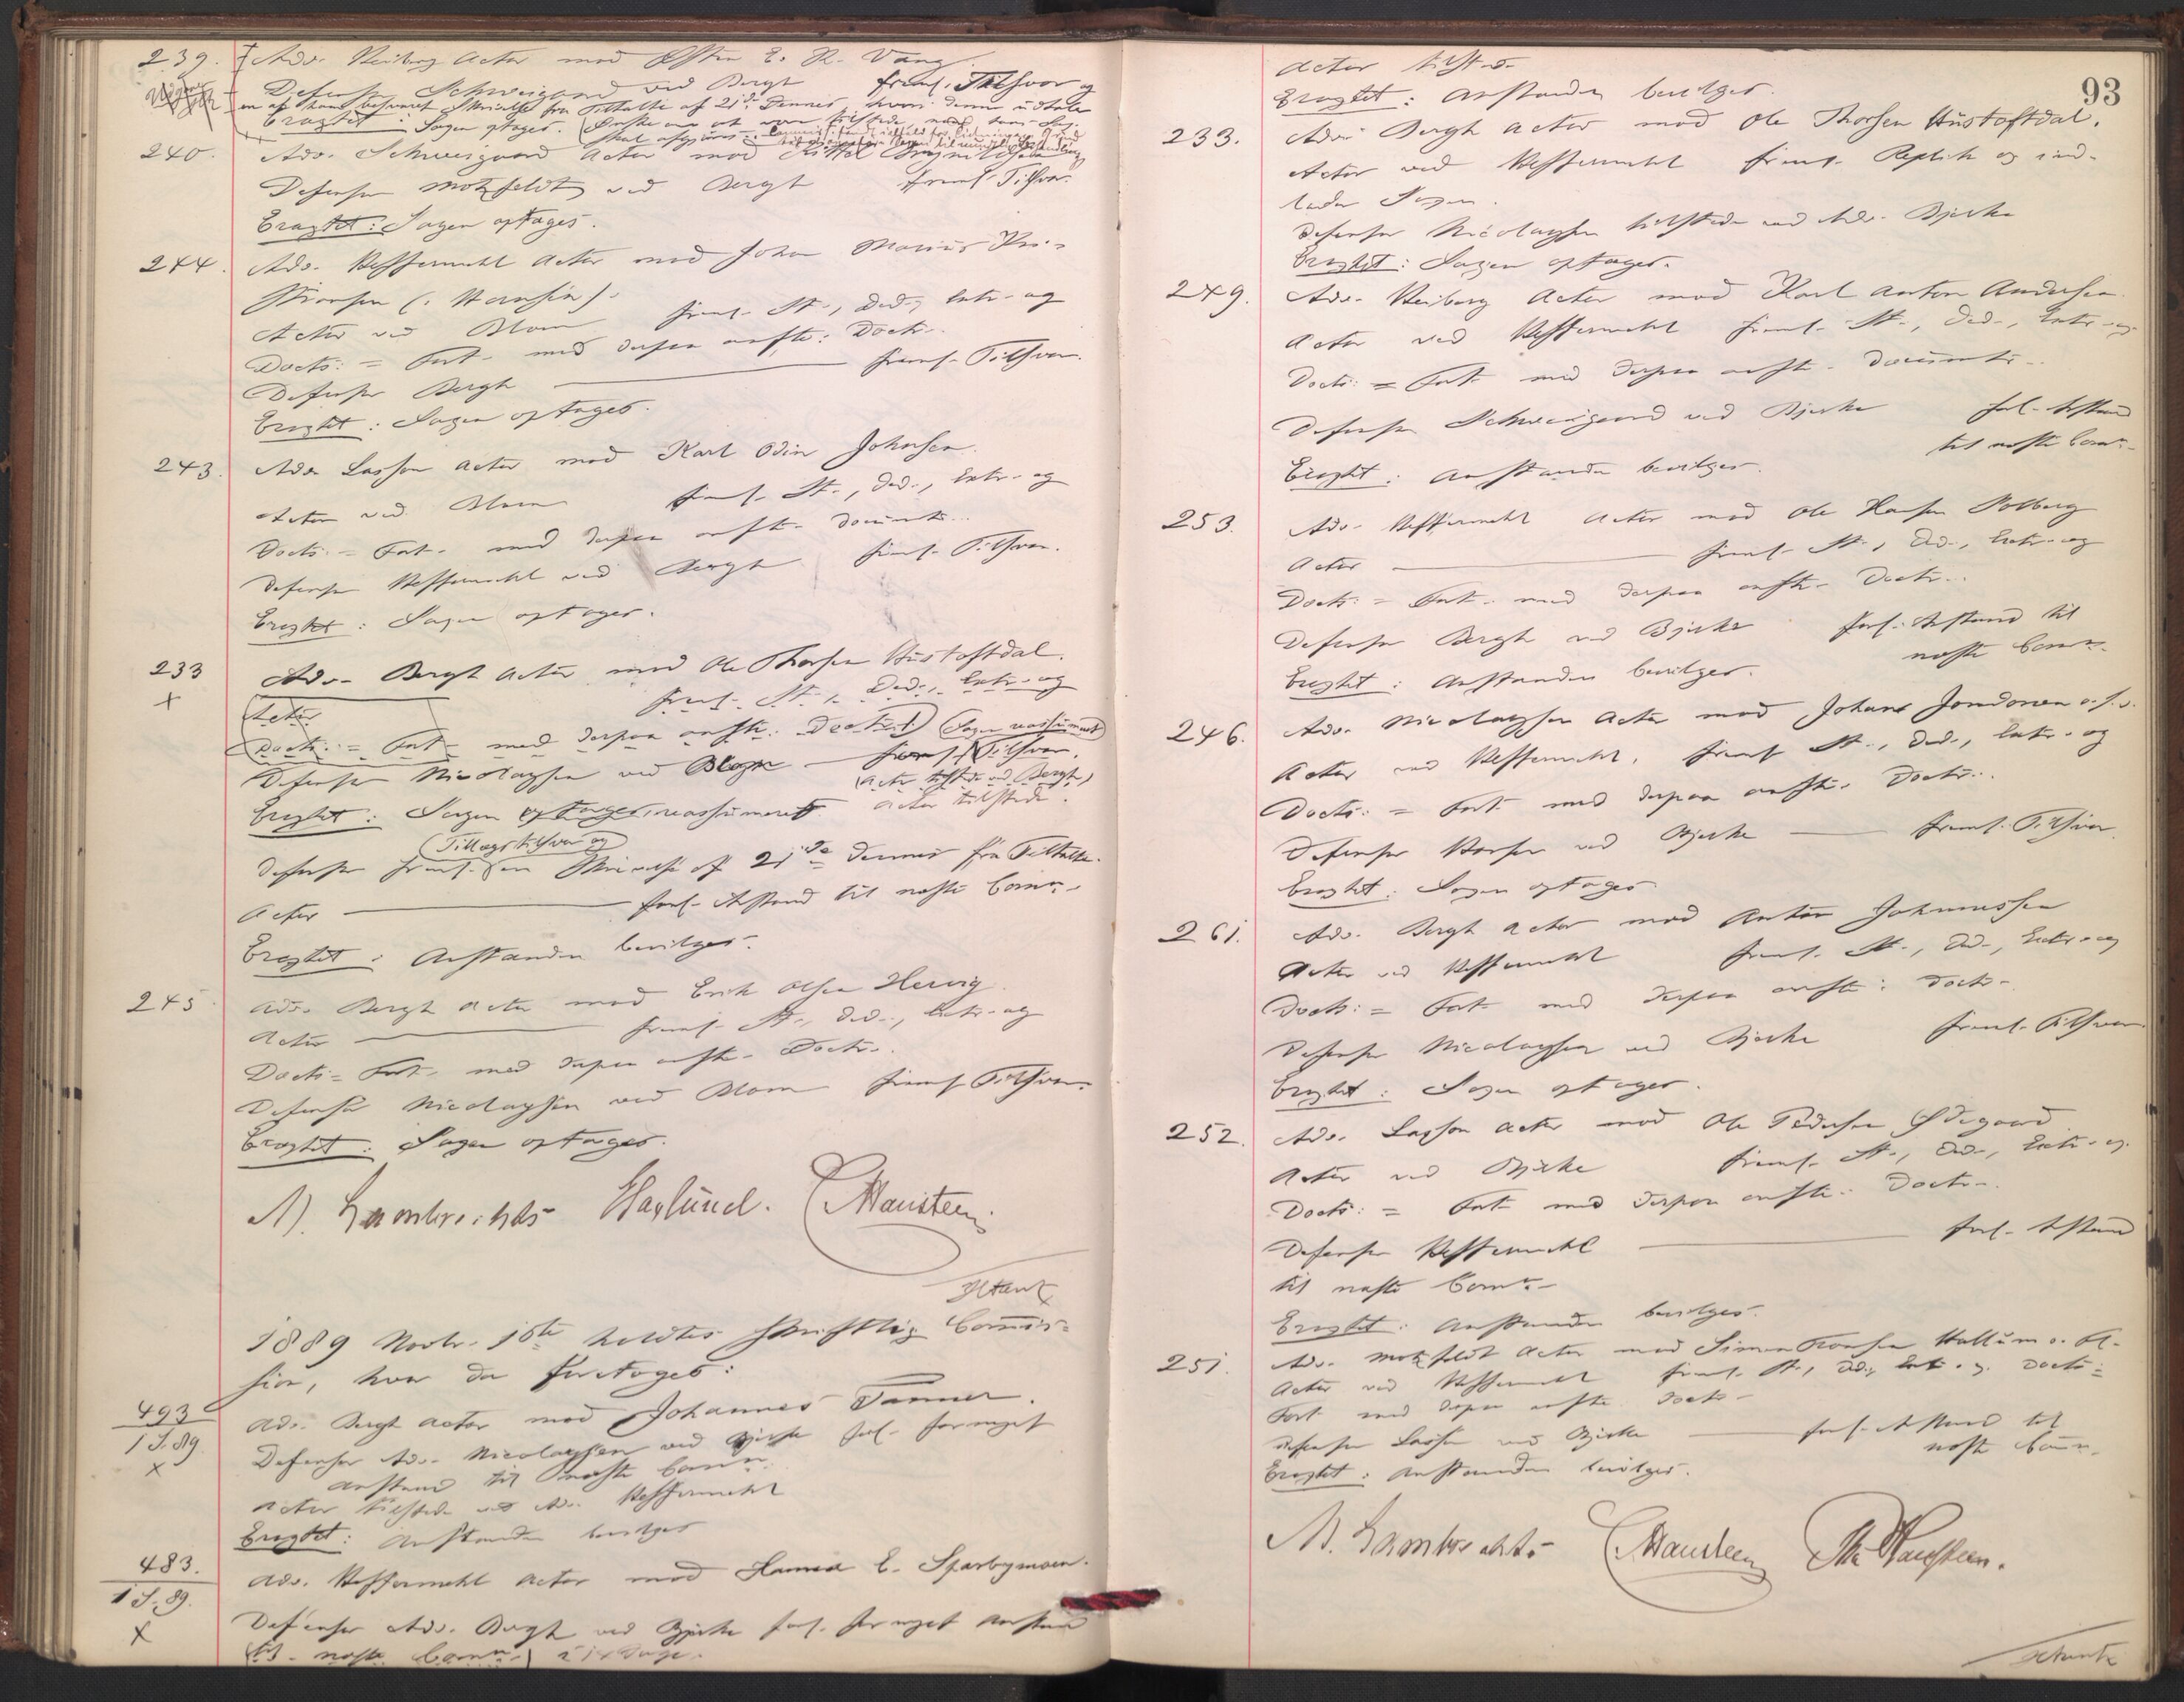 239. Adv. Heiberg Actor mod Østen E. R. Vang.
Defensor Schweigaard ved Bergh freml. Tilsvar og
en af ham besvaret Skrivelse fra Tiltalte af 21de Dennes, hvori denne udtaler
Eragtet: Sagen optages.
240. Adv. Schweigaard Actor mod Kittel
Defensor Motzfeldt ved Bergh freml. Tilsvar.
Eragtet: Sagen optages.
244. Adv. Hesselmuhl Actor mod Johan Marius Kri-
Actor ved Blom freml. St., Ded., Intr. og
Docts: = Fort. med derpaa anfte. Doctr.
Defensor Bergh freml. Tilsvar.
Eragtet: Sagen optages.
243. Adv. Lasson Actor mod Karl Odin Johnsen.
Actor ved Blom freml. St., Ded., Intr. og
Docts: = Fort. med derpaa anfte. Documtr.
Defensor Hesselmuhl ved Bergh freml. Tilsvar.
Eragtet: Sagen optages.
233 Adv. Bergh Actor mod Ole Thorsen Hustoftdal.
x
Actor freml. St., Ded., Intr. og
Docts: = Fort. med derpaa anfte. Doctr. (Sagen reassumeret)
Defensor Nicolaysen ved Blom freml. Tilsvar.
(Actor tilstede ved Bergh)
Eragtet: Sagen optages, reassumeret Actor tilstede.
Tillægstilsvar og
Defensor freml. en Skrivelse af 21de Dennes fra Tiltalte.
Actor forl. Anstand til næste Comn.
Eragtet: Anstanden bevilges.
245 Adv. Bergh Actor mod Erik Olsen Hervig.
Actor freml. St., Ded., Intr. og
Docts: = Fort. med derpaa anfte. Doctr.
Defensor Nicolaysen ved Blom freml. Tilsvar.
Eragtet: Sagen optages.
M. Lambrechts Haslund. CHansteen.
1889 Novbr. 1ste holdtes skriftlig Commis-
sion, hvor da foretoges:
493
1 S. 89.
x
Adv. Bergh Actor mod Johannes Tanner.
Defensor Adv. Nicolaysen ved Bjerke forl. fornyet
Anstand til næste Comn.
Actor tilstede ved Adv. Hesselmuhl
Eragtet: Anstanden bevilges
483.
1 S. 89.
x
Adv. Hesselmuhl Actor mod Hanna E. Sparbymoen.
Defensor Adv. Bergh ved Bjerke forl. fornyet Anstand
til næste Comn. i 14 Dage.
93
Actor tilst.
Eragtet: Anstanden bevilges.
233. Adv. Bergh Actor mod Ole Thorsen Hustoftdal.
Actor ved Hesselmuhl freml. Replik og ind-
lader Sagen.
Defensor Nicolaysen tilstede ved Adv. Bjerke
Eragtet: Sagen optages.
249. Adv. Heiberg Actor mod Karl Anton Andersen
Actor ved Hesselmuhl freml. St., Ded., Intr. og
Docts: = Fort. med derpaa anfte. Documtr.
Defensor Schweigaard ved Bjerke forl. Anstand
til næste Comn.
Eragtet: Anstanden bevilges.
253. Adv. Hesselmuhl Actor mod Ole Hansen Solberg
Actor freml. St., Ded., Intr. og
Docts: = Fort. med derpaa anfte. Doctr.
Defensor Bergh ved Bjerke forl. Anstand til
næste Comn.
Eragtet: Anstanden bevilges.
246. Adv. Nicolaysen Actor mod Johans Jondonen o. fl.
Actor ved Hesselmuhl, freml. St., Ded., Intr. og
Docts: = Fort. med derpaa anfte. Doctr.
Defensor Horsen ved Bjerke freml. Tilsvar.
Eragtet: Sagen optages
261. Adv. Bergh Actor mod Anton Johannessen
Actor ved Hesselmuhl freml. St., Ded., Intr. og
Docts: = Fort. med derpaa anfte. Doctr.
Defensor Nicolaysen ved Bjerke freml. Tilsvar
Eragtet: Sagen optages.
252. Adv. Lasson Actor mod Ole Pedersen Ødegaard
Actor ved Bjerke freml. St., Ded., Intr. og
Docts: = Fort. med derpaa anfte. Doctr.
Defensor Hesselmuhl forl. Anstand
til næste Comn.
Eragtet: Anstanden bevilges.
251. Adv. Motzfeldt Actor mod Simon Hallum o. fl.
Actor ved Hesselmuhl freml. St., Ded., Intr. og Docts: =
Fort. med derpaa anfte. Doctr.
Defensor Lasson ved Bjerke forl. Anstand til
næste Comn.
Eragtet: Anstanden bevilges.
M. Lambrechts. CHansteen